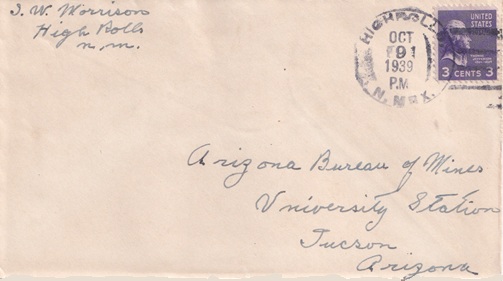 J. W. Morrison
High Rolls
N. M.
HIGH ROLLS
OCT
9
1939
P.M.
N. MEX.
UNITED
STATES
3 CENTS 3
Arizona Bureau of Mines
University Station
Tucson
Arizona